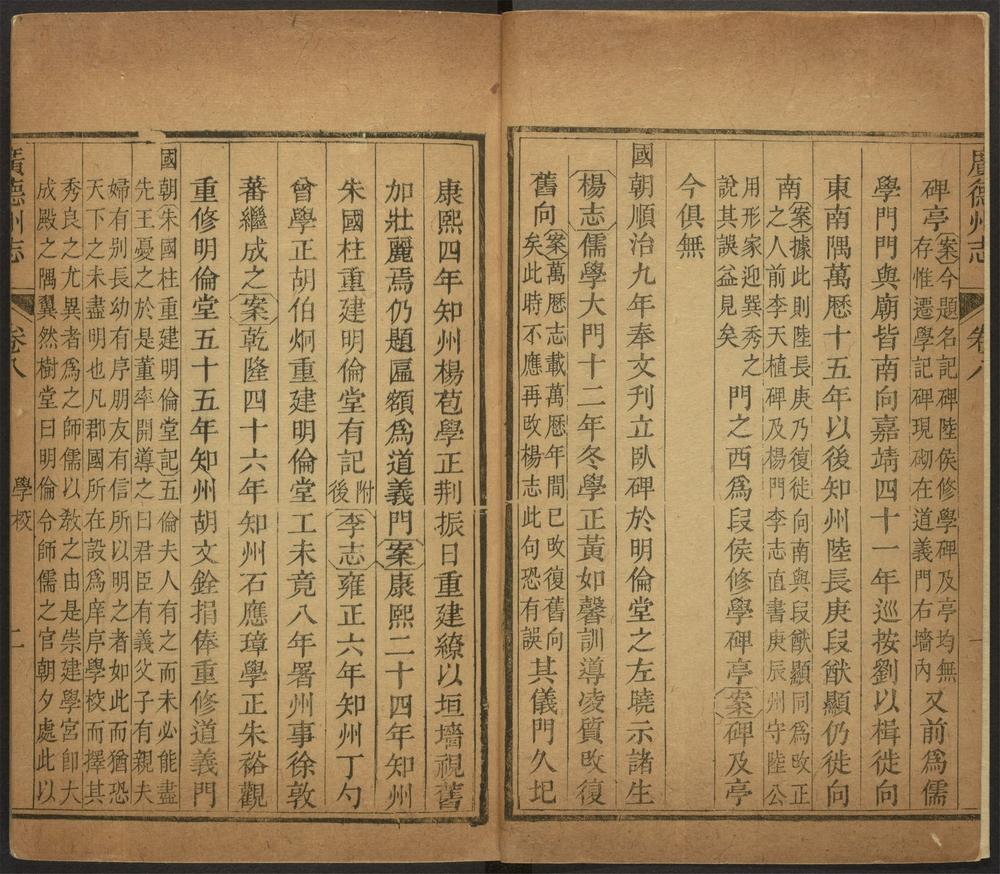 廣德州志 卷八 一
碑亭案今題名記碑陸侯修學碑及亭均無
存惟遷學記碑現砌在道義門右墻內又前爲儒
學門門與廟皆南向嘉靖四十一年巡按劉以楫徙向
東南隅萬歷十五年以後知州陸長庚段猷顯仍徙向
南案據此則陸長庚乃復徙向南與段猷顯同爲攺正
之人前李天植碑及楊門李志直書庚辰州守陸公
用形家迎巽秀之
說其誤益見矣門之西爲段侯修學碑亭案碑及亭
今俱無
國朝順治九年奉文刊立臥碑於明倫堂之左曉示諸生
楊志儒學大門十二年冬學正黃如馨訓導凌質攺復
舊向案萬歷志載萬歷年間已攺復舊向
矣此時不應再攺楊志此句恐有誤其儀門久圮
康熙四年知州楊苞學正荆振日重建繚以垣墻視舊
加壯麗焉仍題匾額爲道義門案康熙二十四年知州
朱國柱重建明倫堂有記附
後李志雍正六年知州丁勺
曾學正胡伯炯重建明倫堂工未竟八年署州事徐敦
蕃繼成之案乾隆四十六年知州石應璋學正朱裕觀
重修明倫堂五十五年知州胡文銓捐俸重修道義門
國朝朱國柱重建明倫堂記五倫夫人有之而未必能盡
先王憂之於是董率開導之曰君臣有義父子有親夫
婦有别長幼有序朋友有信所以明之者如此而猶恐
天下之未盡明也凡郡國所在設爲庠序學校而擇其
秀良之尤異者爲之師儒以教之由是崇建學宮卽大
成殿之隅翼然樹堂曰明倫令師儒之官朝夕處此以
廣德州志 卷八 學校 二